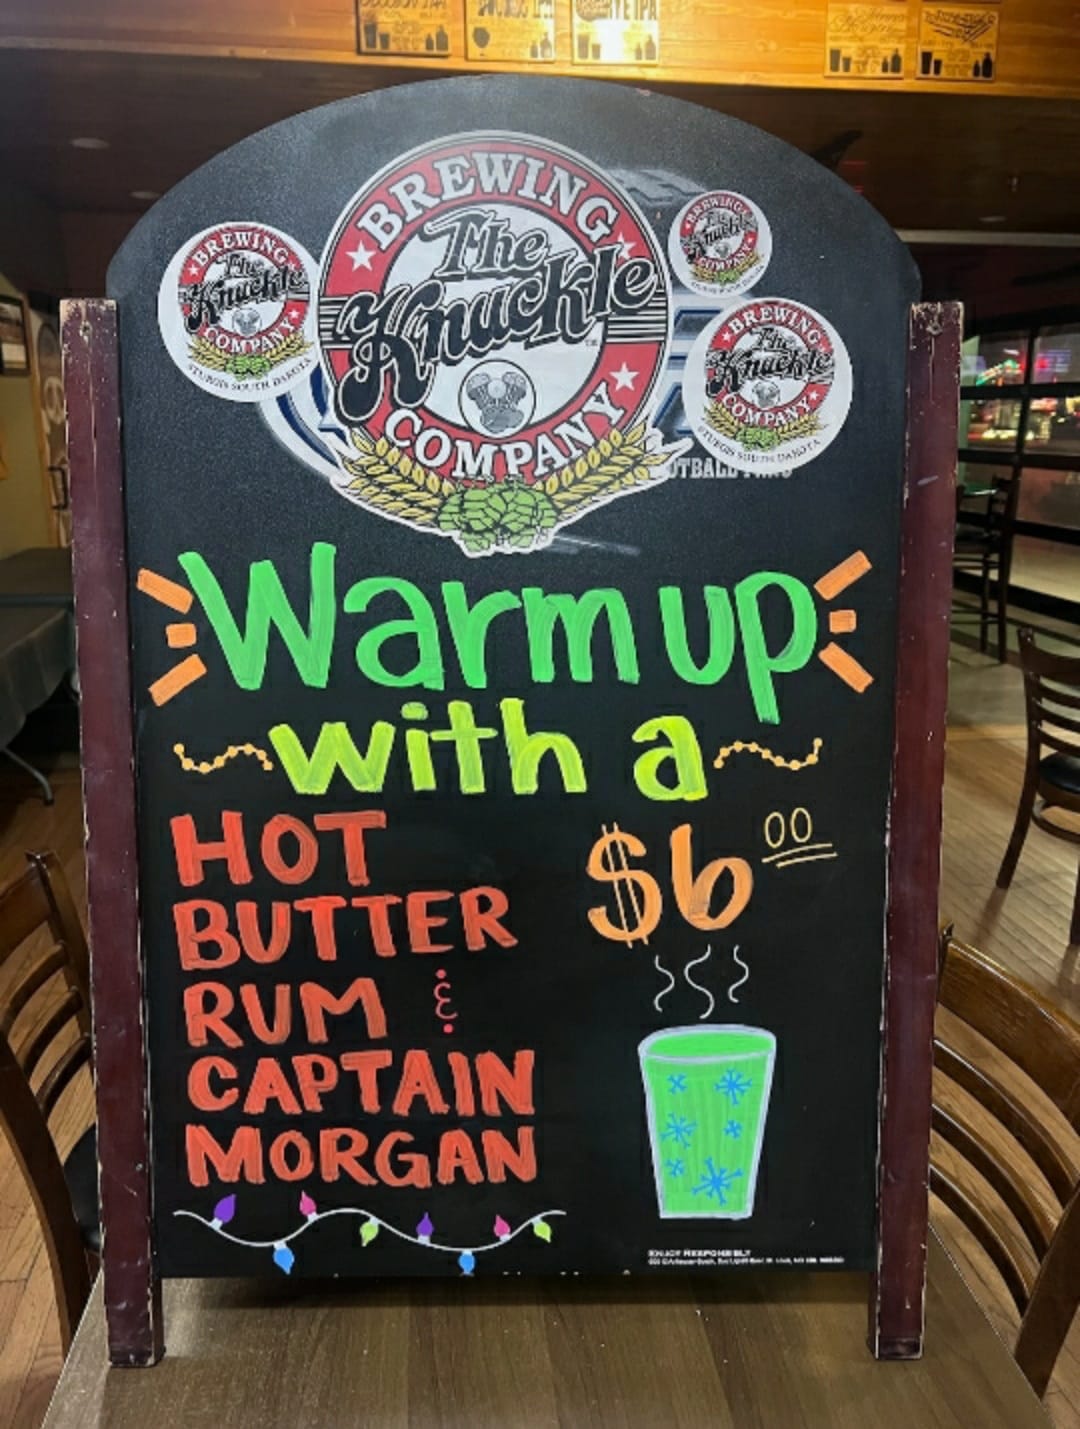 BREWING
The
Knuckle
COMPANY
BREWING
The
Knuckle
COMPANY
STURGIS SOUTH DAKOTA
BREWING
The
Knuckle
COMPANY
BREWING
The
Knuckle
COMPANY
STURGIS SOUTH DAKOTA
Warm up
with a
HOT
BUTTER
RUM &
CAPTAIN
MORGAN
$6 00
ENJOY RESPONSIBLY